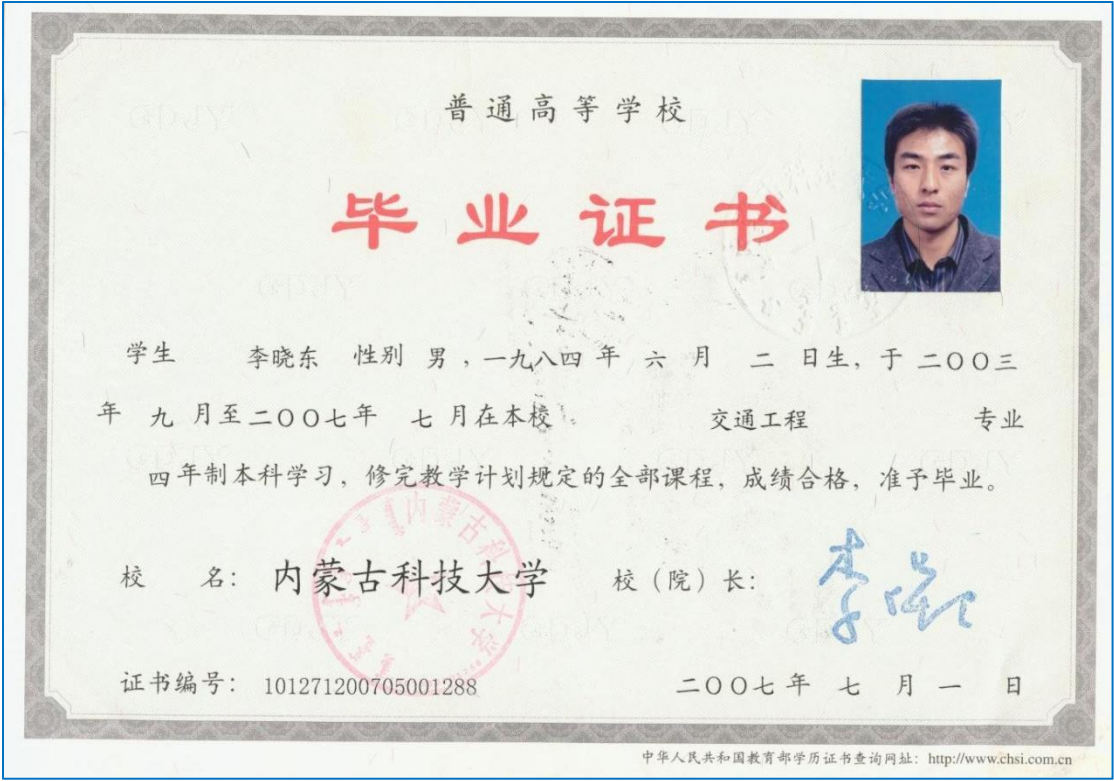 普通高等学校
毕业证书
学生 李晓东 性别 男 ，一九八四 年 六 月 二 日生，于 二〇〇三
年 九 月至二〇〇七年 七 月在本校 交通工程 专业
四年制本科学习，修完教学计划规定的全部课程，成绩合格，准予毕业。
内蒙古科技大学
校 名： 内蒙古科技大学 校（院）长：
证书编号： 101271200705001288 二〇〇七年 七 月 一 日
中华人民共和国教育部学历证书查询网址： http://www.chsi.com.cn